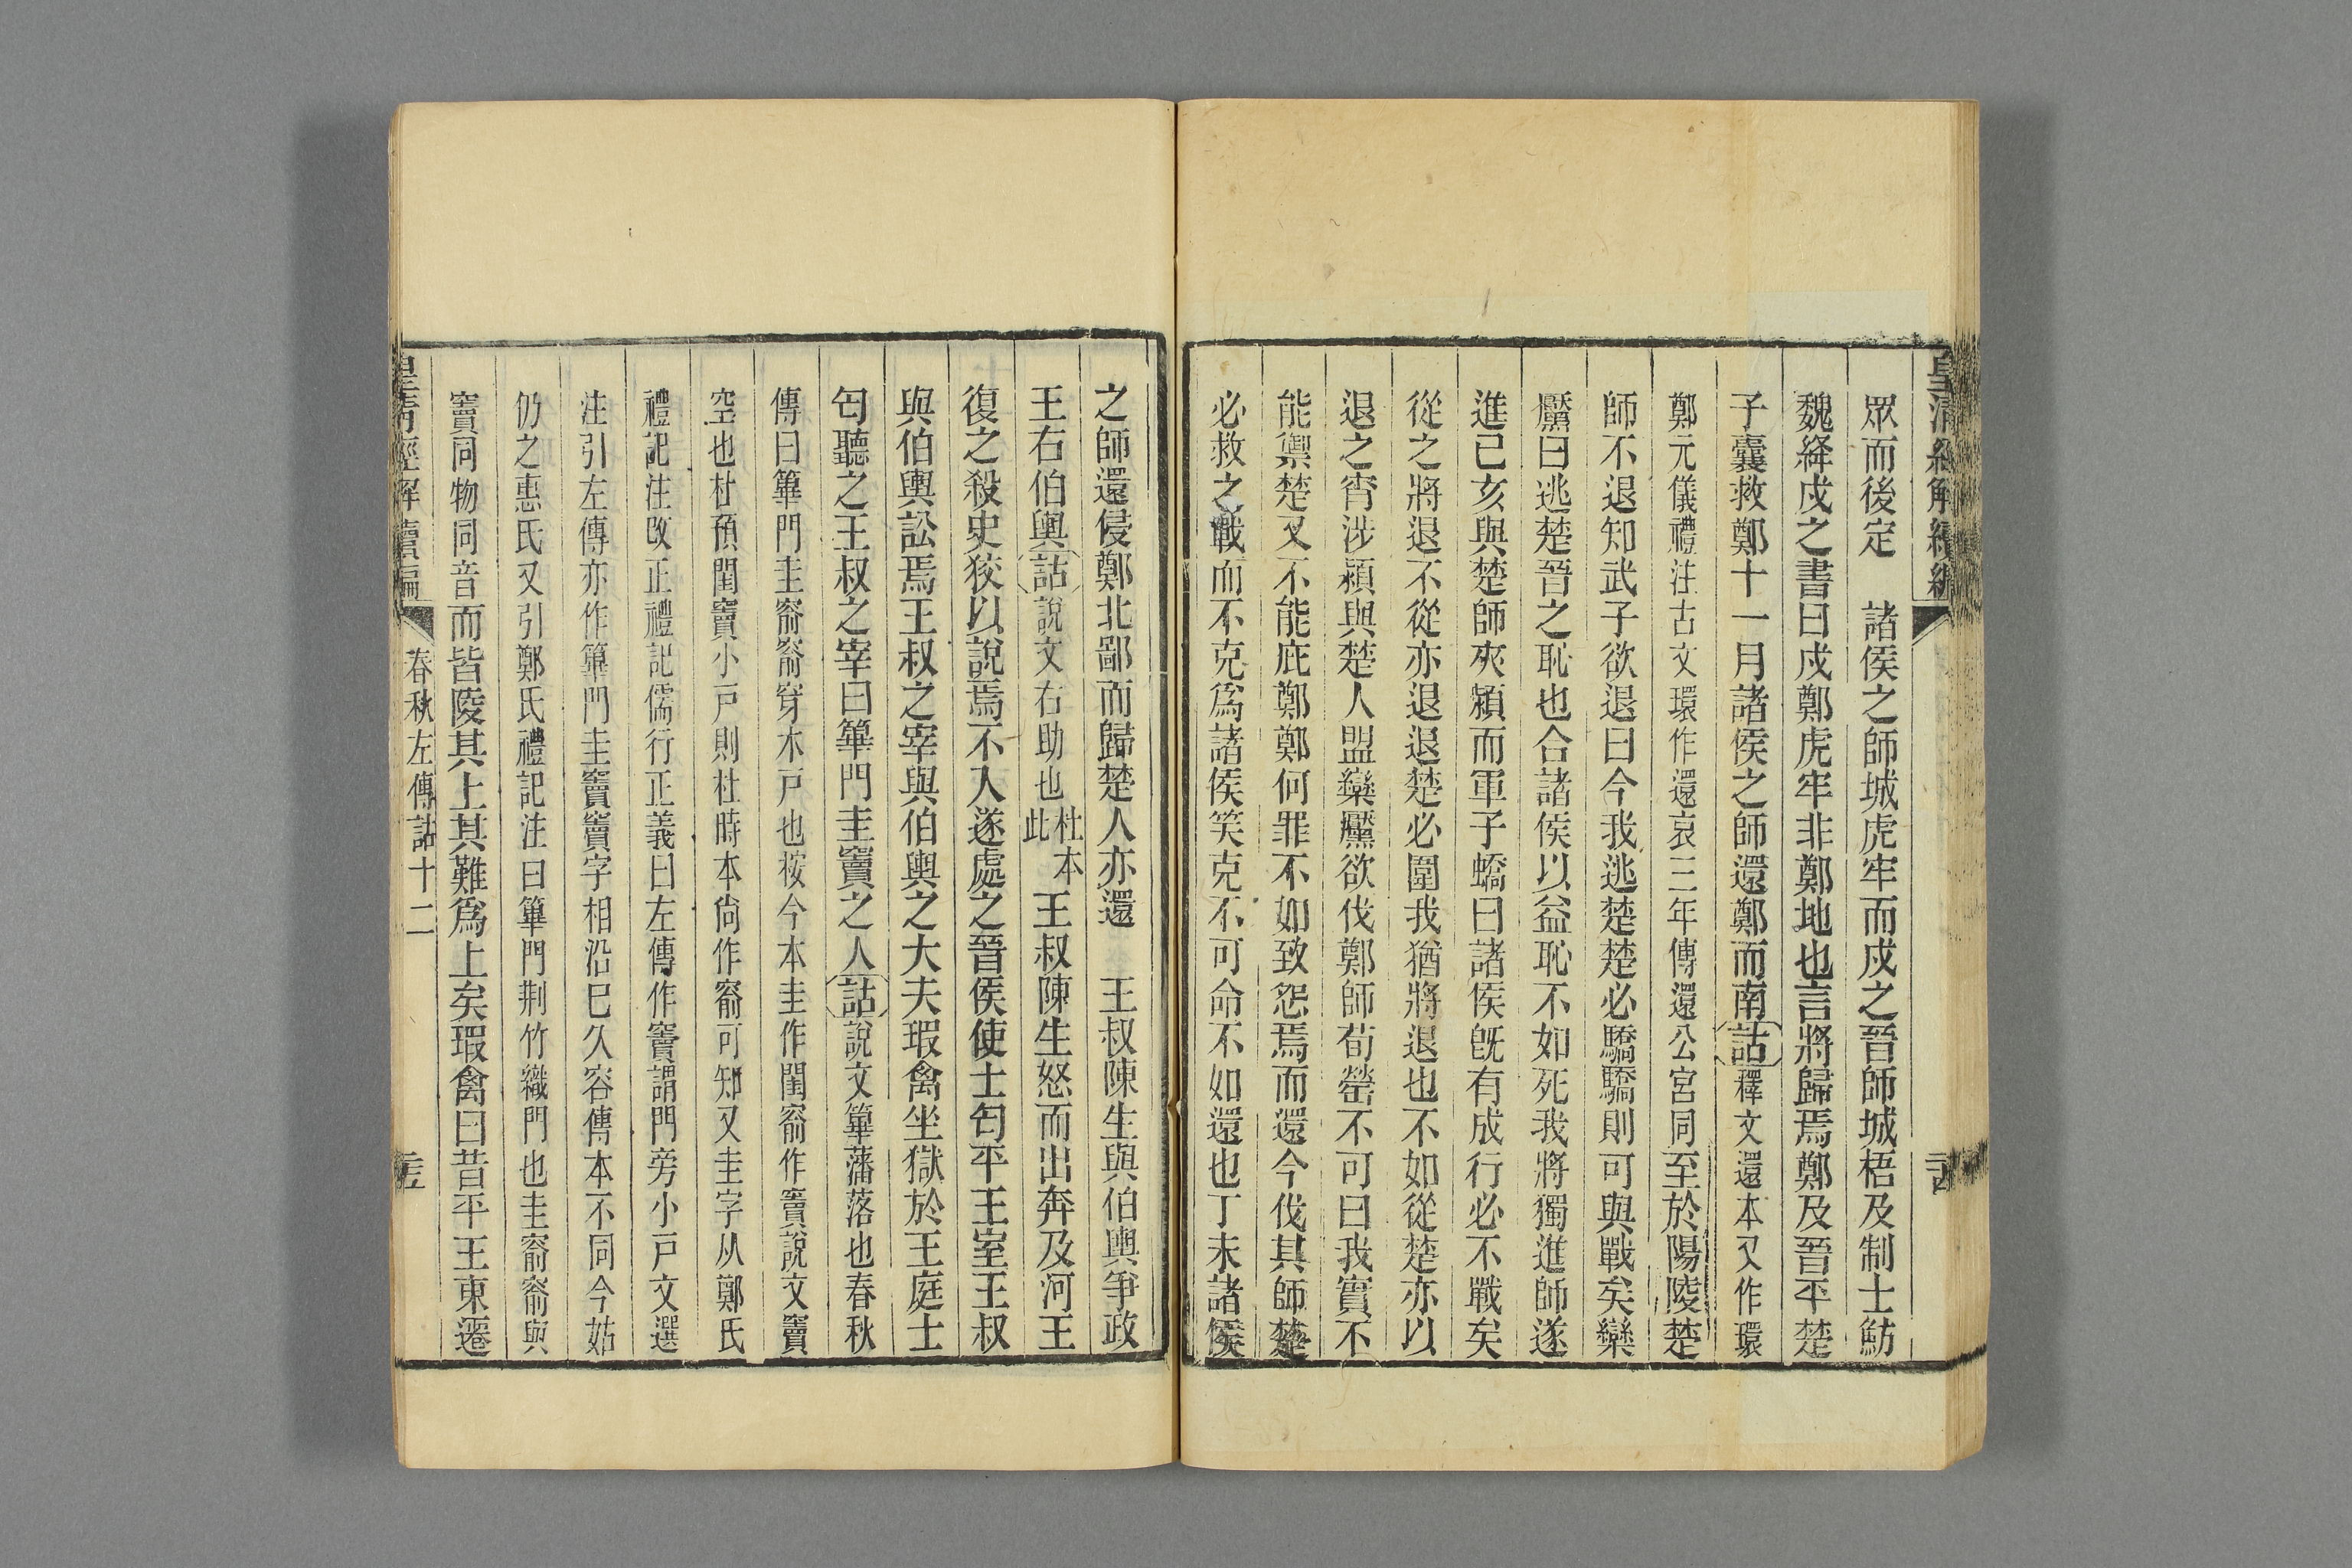 皇清經解續編
眾而後定　諸侯之師城虎牢而戍之晉師城梧及制士魴
魏絳戍之書曰戍鄭虎牢非鄭地也言將歸焉鄭及晉平楚
子囊救鄭十一月諸侯之師還鄭而南詁釋文還本又作環
鄭元儀禮注古文環作還哀三年傳還公宮同至於陽陵楚
師不退知武子欲退曰今我逃楚楚必驕驕則可與戰矣欒
黶曰逃楚晉之恥也合諸侯以益恥不如死我將獨進師遂
進己亥與楚師夾潁而軍子蟜曰諸侯既有成行必不戰矣
從之將退不從亦退退楚必圍我猶將退也不如從楚亦以
退之宵涉潁與楚人盟欒黶欲伐鄭師荀罃不可曰我實不
能禦楚又不能庇鄭鄭何罪不如致怨焉而還今伐其師楚
必救之戰而不克爲諸侯笑克不可命不如還也丁未諸侯
之師還侵鄭北鄙而歸楚人亦還　王叔陳生與伯輿爭政
王右伯輿詁說文右助也杜本此王叔陳生怒而出奔及河王
復之殺史狡以說焉不入遂處之晉侯使士匄平王室王叔
與伯輿訟焉王叔之宰與伯輿之大夫瑕禽坐獄於王庭士
匄聽之王叔之宰曰篳門圭竇之人詁說文篳藩落也春秋
傳曰篳門圭窬窬穿木戸也按今本圭作閨窬作竇說文竇
空也杜預閨竇小戸則杜時本尙作窬可知又圭字从鄭氏
禮記注改正禮記儒行正義曰左傳作竇謂門旁小戸文選
注引左傳亦作篳門圭竇竇字相沿已久容傳本不同今姑
仍之惠氏又引鄭氏禮記注曰篳門荆竹織門也圭窬窬與
竇同物同音而皆陵其上其難爲上矣瑕禽曰昔平王東遷
皇清經解續編　春秋左傳詁十二